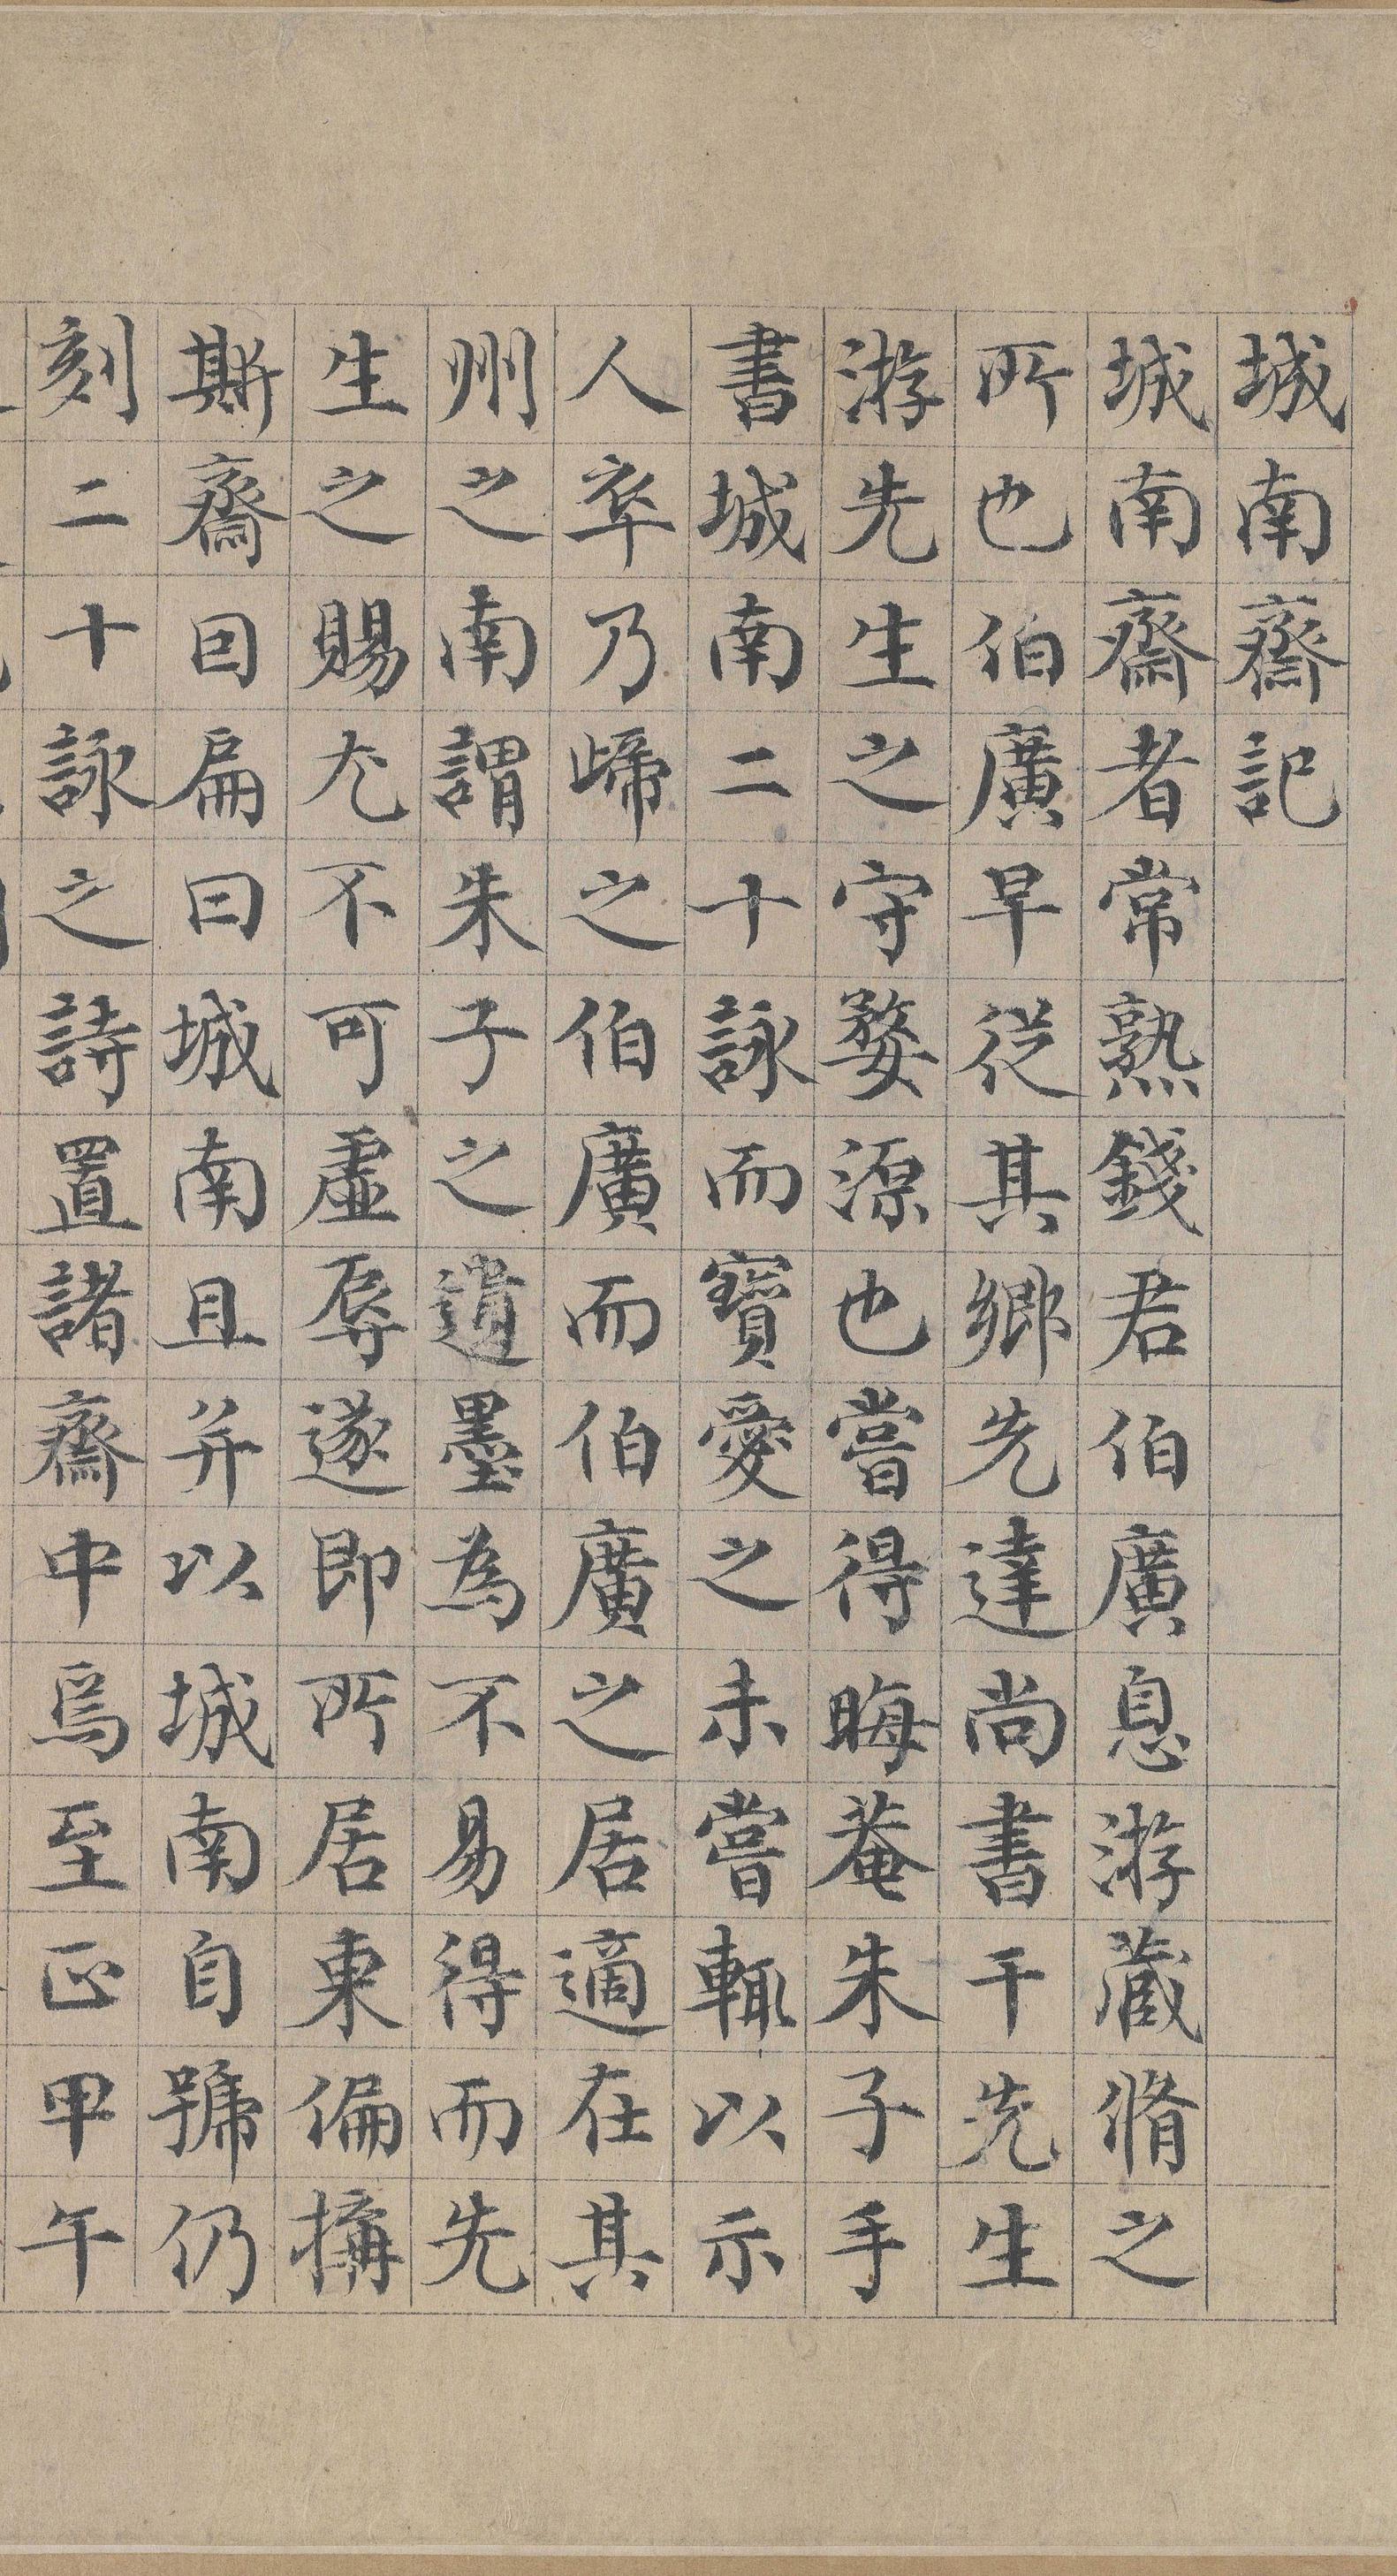 城南齋記
城南齋者常熟錢君伯廣息游藏脩之
所也伯廣早從其鄉先達尚書干先生
游先生之守婺源也嘗得晦菴朱子手
書城南二十詠而寶愛之未嘗輙以示
人卒乃歸之伯廣而伯廣之居適在其
州之南謂朱子之遺墨為不易得而先
生之賜尤不可虛辱遂即所居東偏搆
斯齋因扁曰城南且并以城南自號仍
刻二十詠之詩置諸齋中焉至正甲午